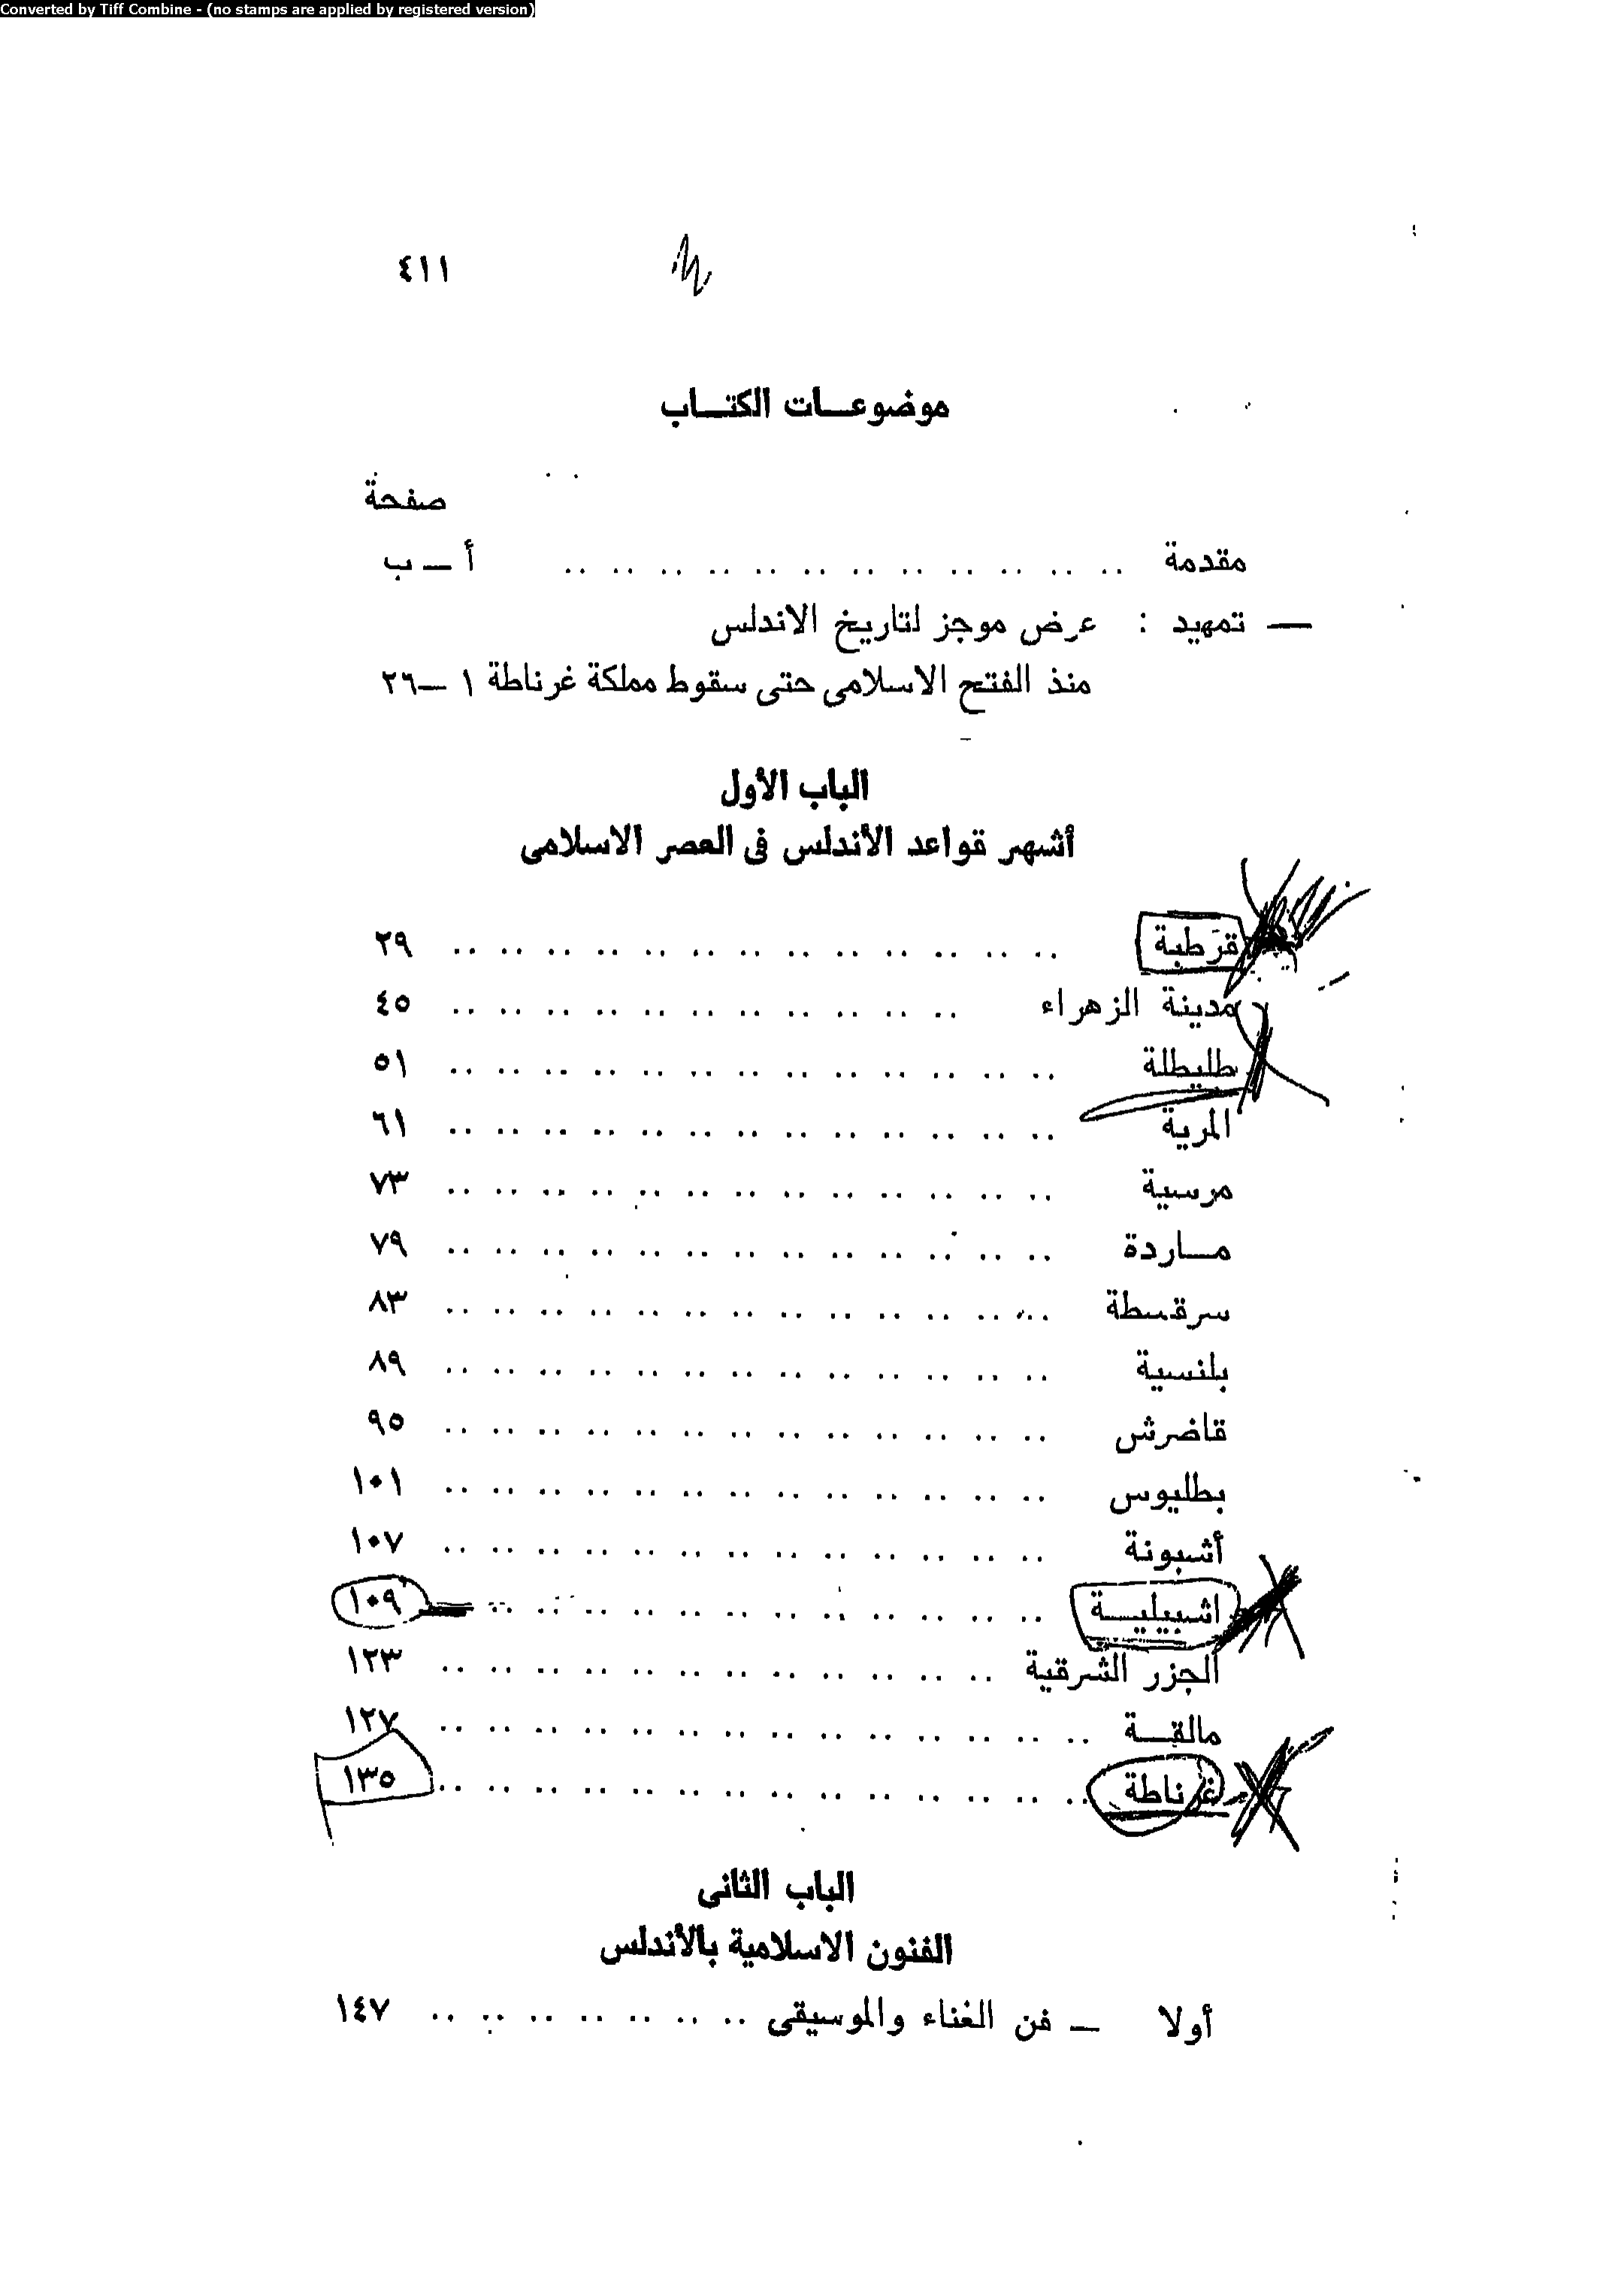 Converted by Tiff Combine - (no stamps are applied by registered version)
٤١١
موضوعـات الكتـاب
صفحة
مقدمة .. .. .. .. .. .. .. .. .. .. .. .. أ — ب
— تمهيد : عرض موجز لتاريخ الاندلس
منذ الفتح الاسلامى حتى سقوط مملكة غرناطة ١ —٢٦
الباب الأول
أشهر قواعد الأندلس فى العصر الاسلامى
قرطبة .. .. .. .. .. .. .. .. .. .. .. .. .. ٢٩
مدينة الزهراء .. .. .. .. .. .. .. .. .. .. .. ٤٥
طليطلة .. .. .. .. .. .. .. .. .. .. .. .. .. ٥١
المرية .. .. .. .. .. .. .. .. .. .. .. .. .. ٦١
مرسية .. .. .. .. .. .. .. .. .. .. .. .. .. ٧٣
مـاردة .. .. .. .. .. .. .. .. .. .. .. .. .. ٧٩
سرقسطة .. .. .. .. .. .. .. .. .. .. .. .. .. ٨٣
بلنسية .. .. .. .. .. .. .. .. .. .. .. .. .. ٨٩
قاضرش .. .. .. .. .. .. .. .. .. .. .. .. .. ٩٥
بطليوس .. .. .. .. .. .. .. .. .. .. .. .. .. ١٠١
أشبونة .. .. .. .. .. .. .. .. .. .. .. .. .. ١٠٧
اشبيليـة .. .. .. .. .. .. .. .. .. .. .. .. ١٠٩
الجزر الشرقية .. .. .. .. .. .. .. .. .. .. .. .. ١٢٣
مالقـة .. .. .. .. .. .. .. .. .. .. .. .. .. .. ١٢٧
غرناطة .. .. .. .. .. .. .. .. .. .. .. .. .. .. ١٣٥
الباب الثانى
الفنون الاسلامية بالأندلس
أولا — فن الغناء والموسيقى .. .. .. .. .. .. .. ١٤٧